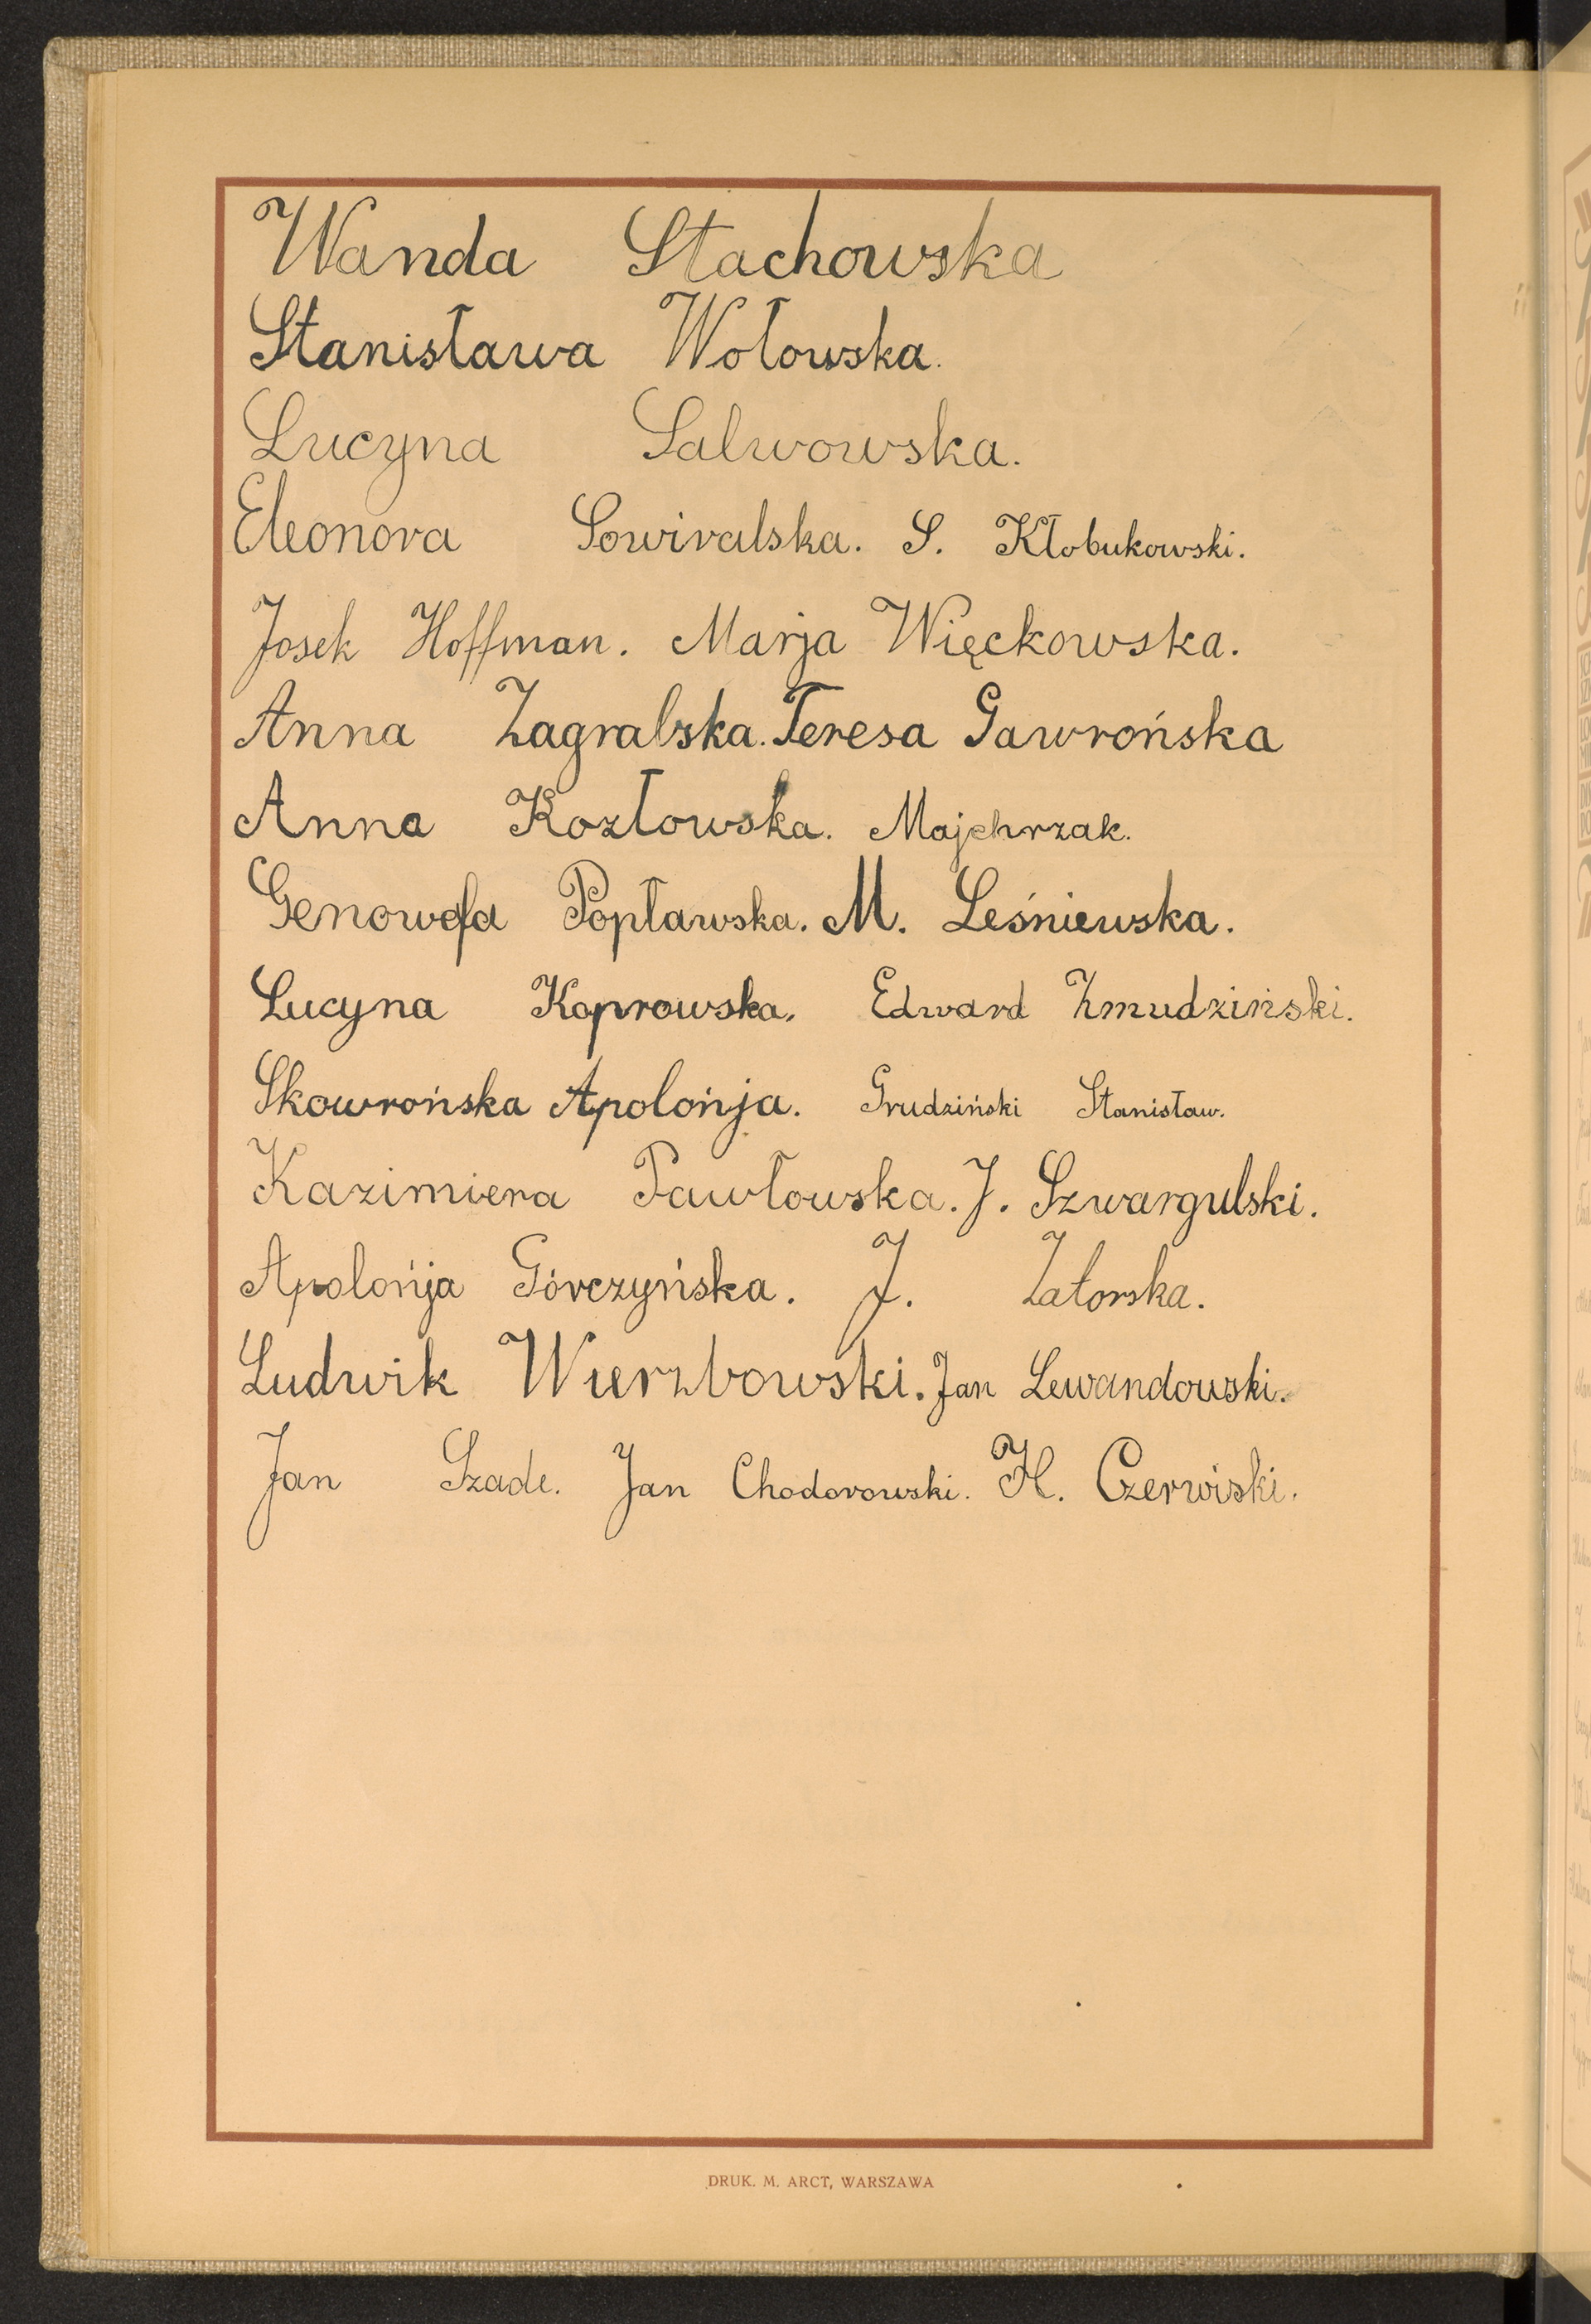 Wanda Stachowska
Stanisława Wołowska.
Lucyna Salwowska.
Eleonora Sowiralska. S. Kłobukowski.
Josek Hoffman. Marja Więckowska.
Anna Zagralska. Teresa Gawrońska
Anna Kozłowska. Majchrzak.
Genowefa Popławska. M. Leśniewska.
Lucyna Koprowska. Edward Zmudziński.
Skowrońska Apolońja. Grudziński Stanisław.
Kazimiera Pawłowska. J. Szwargulski.
Apolońja Górczyńska. J. Zatorska.
Ludwik Wierzbowski. Jan Lewandowski.
Jan Szade. Jan Chodorowski. H. Czerwiski.
DRUK. M. ARCT, WARSZAWA